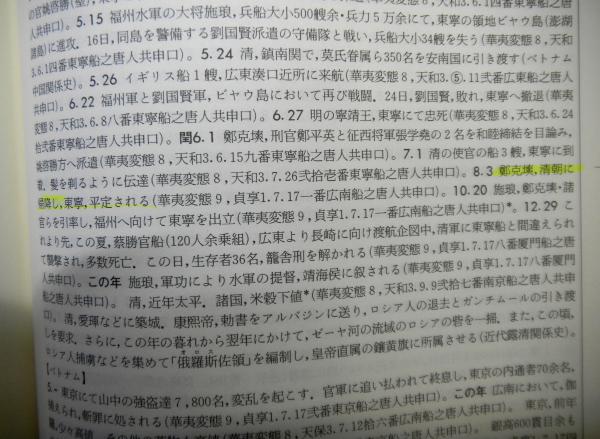 人共申口）。5.15 福州水軍の大将施琅，兵船大小500艘余・兵力5万余にて，東寧の領地ビヤウ島（澎湖
諸島）に進攻．16日，同島を警備する劉国賢派遣の守備隊と戦い，兵船大小34艘を失う（華夷変態8，天和
3.6.1四番東寧船之唐人共申口）。5.24 清，鎮南関で，莫氏眷属ら350名を安南国に引き渡す（ベトナム
中国関係史）。5.26 イギリス船1艘，広東湊口近所に来航（華夷変態8，天和3.⑤.11弐番広東船之唐
人共申口）。6.22 福州軍と劉国賢軍，ビヤウ島において再び戦闘．24日，劉国賢，敗れ，東寧へ撤退（華夷
変態8，天和3.6.8八番東寧船之唐人共申口）。6.27 明の寧靖王，東寧にて忠死（華夷変態8，天和3.6.24
拾弐番東寧船之唐人共申口）。閏6.1 鄭克塽，刑官鄭平英と征西将軍張学堯の2名を和睦締結を目論み，
姚啓勝方へ派遣（華夷変態8，天和3.6.15九番東寧船之唐人共申口）。7.1 清の使官の船3艘，東寧に到
着．髪を剃るように伝達（華夷変態8，天和3.7.26弐拾壱番東寧船之唐人共申口）。8.3 鄭克塽，清朝に
帰降し，東寧，平定される（華夷変態9，貞享1.7.17一番広南船之唐人共申口）。10.20 施琅，鄭克塽・諸
官らを引率し，福州へ向けて東寧を出立（華夷変態9，貞享1.7.17一番広南船之唐人共申口）*。12.29 こ
れより先，この夏，蔡勝官船（120人余乗組），広東より長崎に向け渡航企図中，清軍に東寧船と間違えられ
て襲撃され，多数死亡．この日，生存者36名，籠舎刑を解かれる（華夷変態9，貞享1.7.17八番厦門船之唐
人共申口）。この年 施琅，軍功により水軍の提督，靖海侯に叙される（華夷変態9，貞享1.7.17八番厦門
船之唐人共申口）。清，近年太平．諸国，米穀下値*（華夷変態8，天和3.9.9弐拾七番南京船之唐人共申
口）。清，愛琿などに築城．康熙帝，勅書をアルバジンに送り，ロシア人の退去とガンチムールの引き渡
しを要求．さらに，この年の暮れから翌年にかけて，ゼーヤ河の流域のロシアの砦を一掃．また，この頃，
ロシア人捕虜などを集めて「俄羅斯佐領」を編制し，皇帝直属の鑲黄旗に所属させる（近代露清関係史）。
【ベトナム】
5.- 東京にて山中の強盗達7，800名，変乱を起こす．官軍に追い払われて終息し，東京の内通者70余名，
捕えられ，斬罪に処される（華夷変態9，貞享1.7.17弐番東京船之唐人共申口）。この年 広南において，伽